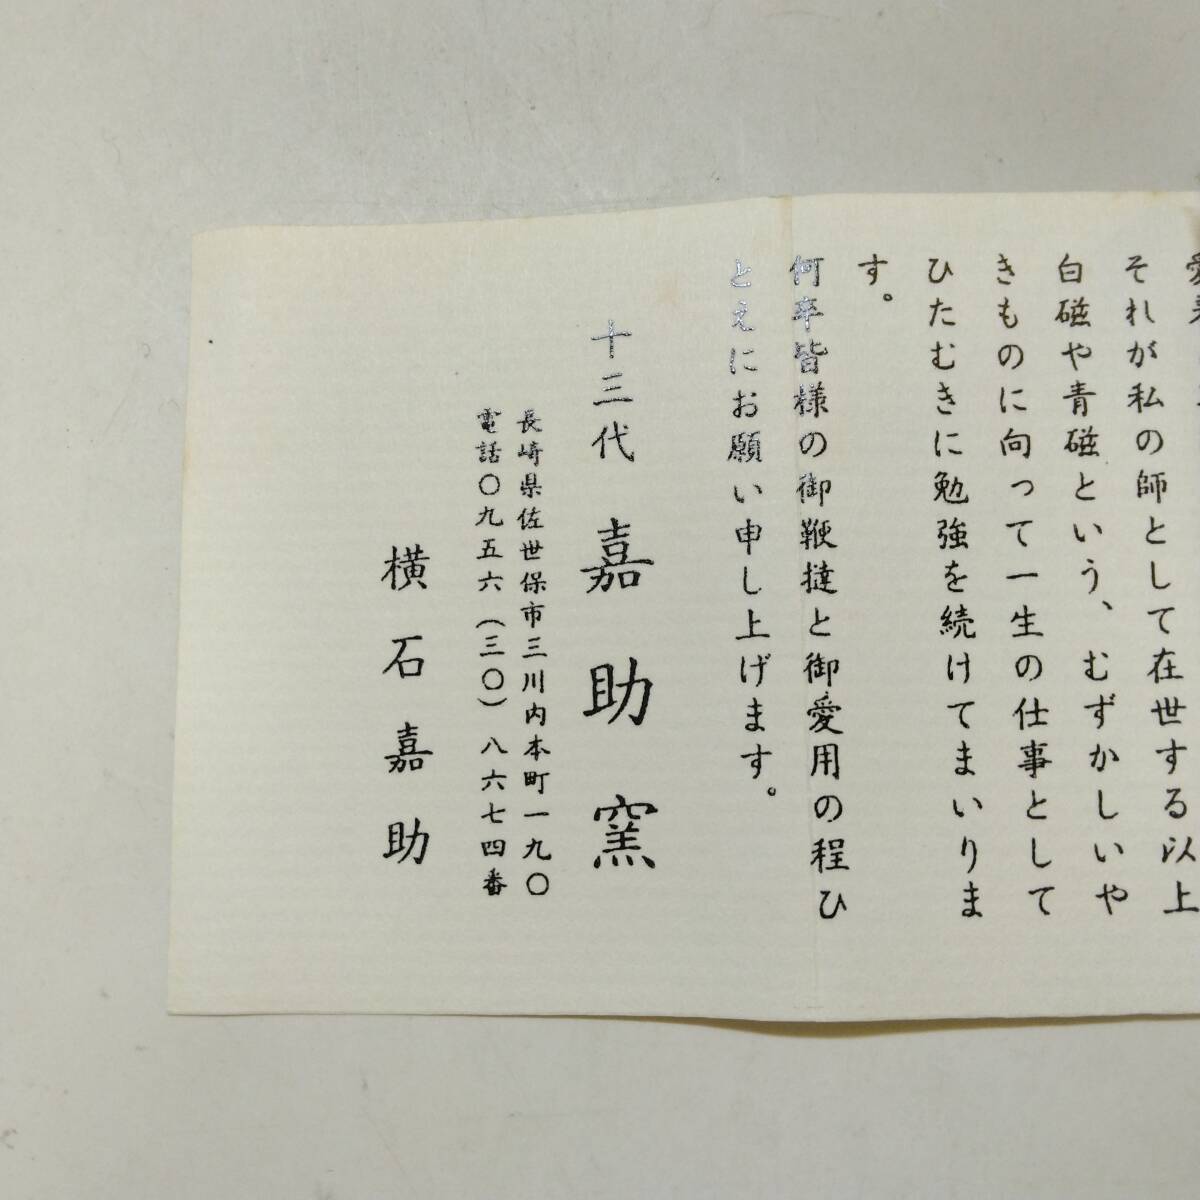 それが私の師として在世する以上
白磁や青磁という、むずかしいや
きものに向って一生の仕事として
ひたむきに勉強を続けてまいりま
す。
何卒皆様の御鞭撻と御愛用の程ひ
とえにお願い申し上げます。
十三代 嘉助窯
長崎県佐世保市三川内本町一九〇
電話〇九五六(三〇)八六七四番
横石嘉助